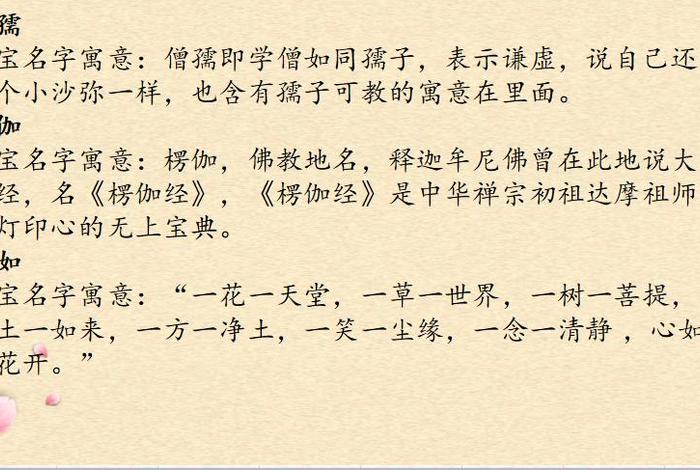 孺
宝名字寓意：僧孺即学僧如同孺子，表示谦虚，说自己还
个小沙弥一样，也含有孺子可教的寓意在里面。
伽
宝名字寓意：楞伽，佛教地名，释迦牟尼佛曾在此地说大
经，名《楞伽经》，《楞伽经》是中华禅宗初祖达摩祖师
灯印心的无上宝典。
如
宝名字寓意：“一花一天堂，一草一世界，一树一菩提，
土一如来，一方一净土，一笑一尘缘，一念一清静 ，心如
花开。”